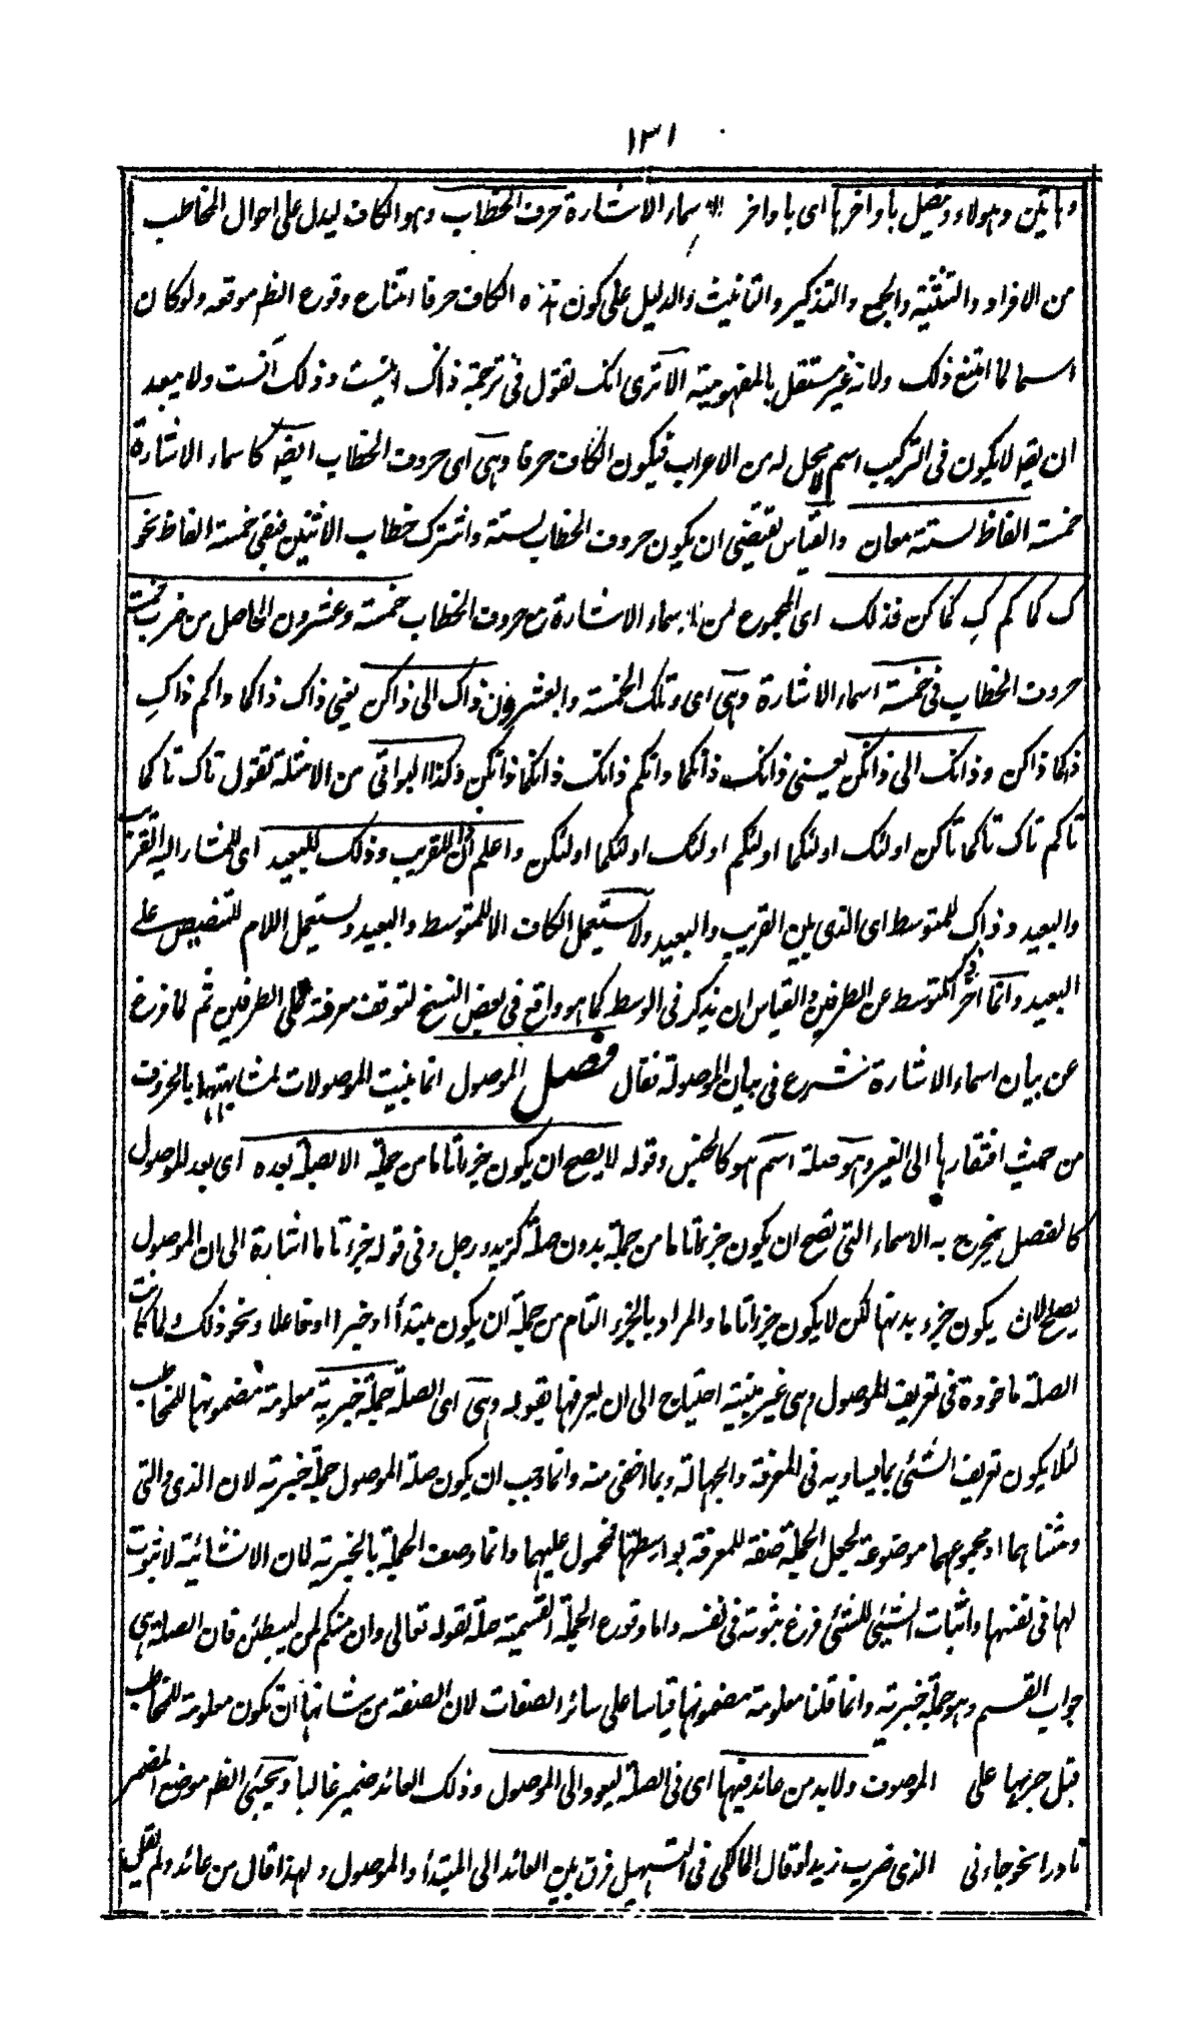 ١٣١
وهاتين وهؤلاء ويتصل باواخرها اى باواخر اسماء الاشارة حرف الخطاب وهو الكاف ليدل على احوال المخاطب
من الافراد والتثنية والجمع والتذكير والتانيث والدليل على كون هذه الكاف حرفا امتناع وقوع الظ موقعه ولو كان
اسما لما امتنع ذلك ولانه غير مستقل بالمفهومية الا ترى انك تقول فى ترجمة ذاك اينست وذلك آنست ولا يبعد
ان يقه لا يكون فى التركيب اسم لا محل له من الاعراب فيكون الكاف حرفا وهى اى حروف الخطاب ايضا كاسماء الاشارة
خمسة الفاظ لستة معان والقياس يقتضى ان يكون حروف الخطاب لستة واشترك خطاب الاثنين فبقى خمسة الفاظ نحو
ك كما كم كِ كما كن فذلك اى المجموع لمن اسماء الاشارة مع حروف الخطاب خمسة وعشرون الحاصل من ضرب خمسة
حروف الخطاب فى خمسة اسماء الاشارة وهى اى وتلك الخمسة والعشرون ذاك الى ذاكن يعنى ذاك ذاكما واكم ذاكِ
ذاكما ذاكن وذانك الى ذانكن يعنى ذانك ذانكما وانكم ذانك ذانكما ذانكن وكذا البواقى من الامثلة تقول تاك تاكما
تاكم تاك تاكما تاكن اولئك اولئكما اولئكم اولئك اولئكما اولئكن واعلم ان ذا للقريب وذلك للبعيد اى للمشار اليه القريب
والبعيد وذاك للمتوسط اى الذى بين القريب والبعيد ولا تستعمل الكاف الا للمتوسط والبعيد ويستعمل اللام للتنصيص على
البعيد وانما اخر المتوسط عن الطرفين والقياس ان يذكر فى الوسط كما هو واقع فى بعض النسخ لتوقف معرفته على الطرفين ثم لما فرغ
عن بيان اسماء الاشارة شرع فى بيان الموصولة فقال فصل الموصول انما بنيت الموصولات لمشابهتها بالحروف
من حيث افتقارها الى الغير وهو صلة اسم هو كالجنس وقوله لا يصح ان يكون جزءا تاما من جملة الا بصلة بعده اى بعد الموصول
كالفصل يخرج به الاسماء التى تصح ان يكون جزءا تاما من جملة بدون صلة كزيد ورجل وفى قوله جزءا تاما اشارة الى ان الموصول
يصلح لان يكون جزء بدونها لكن لا يكون جزءا تاما والمراد بالجزء التام من جملة ان يكون مبتدأ او خبرا او فاعلا ونحو ذلك ولما كانت
الصلة ماخوذة فى تعريف الموصول وهى غير مبينة احتياج الى ان يعرفها بقوله وهى اى الصلة جملة خبرية معلومة مضمونها للمخاطب
لئلا يكون تعريف الشئى بما يساويه فى المعرفة والجهالة وبما اخفى منه وانما وجب ان يكون صلة الموصول جملة خبرية لان الذى والتى
ومثناهما او مجموعهما موضوعة لجعل الجملة صفة للمعرفة بواسطتها محمول عليهما وانما وصف الجملة بالخبرية لان الانشائية لا ثبوت
لها فى نفسها واثبات الشيئى للشئى فرع ثبوته فى نفسه واما وقوع الجملة القسمية صلة لقوله تعالى وان منكم لمن ليبطئن فان الصلة هى
جواب القسم وهو جملة خبرية وانما قلنا معلومة مضمونها قياسا على سائر الصفات لان الصفة من شانها ان تكون معلومة للمخاطب
قبل جريها على الموصوف ولابد من عائد فيها اى فى الصلة ليعود الى الموصول وذلك العائد ضمير غالبا ويجيئى الظ موضع المضمر
نادرا نحو جاءنى الذى ضرب زيد او قال المالكى فى التسهيل فرق بين العائد الى المبتدأ والموصول ولهذا قال من عائد ولم يقل